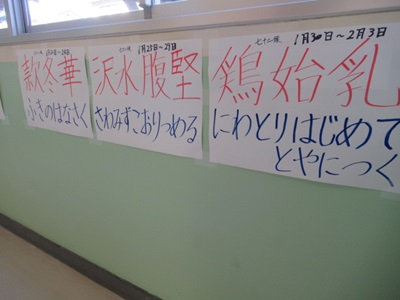 款冬華
ふきのはなさく
七十二候 1月25日～29日
沢水腹堅
さわみずこおりつめる
七十二候 1月30日～2月3日
鶏始乳
にわとりはじめて
とやにつく